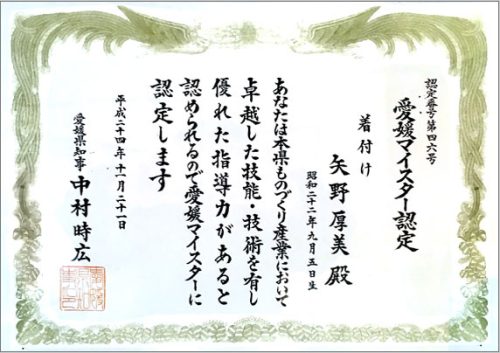 認定番号第四六号
愛媛マイスター認定
着付け
矢野厚美殿
昭和二十二年九月五日生
あなたは本県ものづくり産業において
卓越した技能・技術を有し
優れた指導力があると
認められるので愛媛マイスターに
認定します
平成二十四年十一月二十一日
愛媛県知事 中村時広